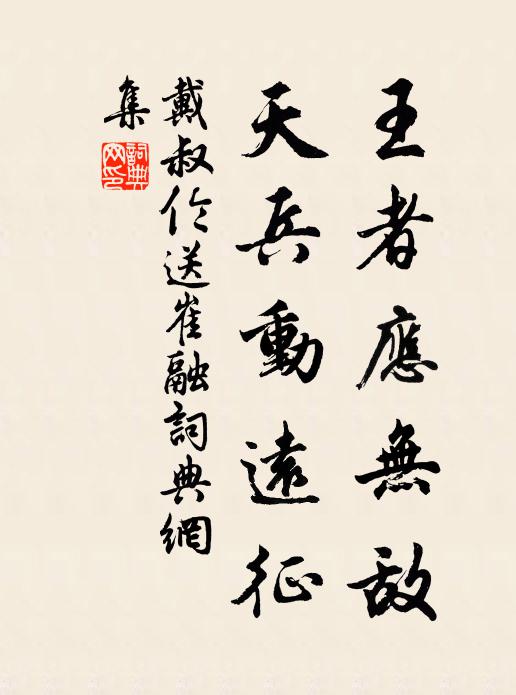 王者應無敵
天兵動遠征
戴叔伦送崔融詞典網
集
詞典
网印